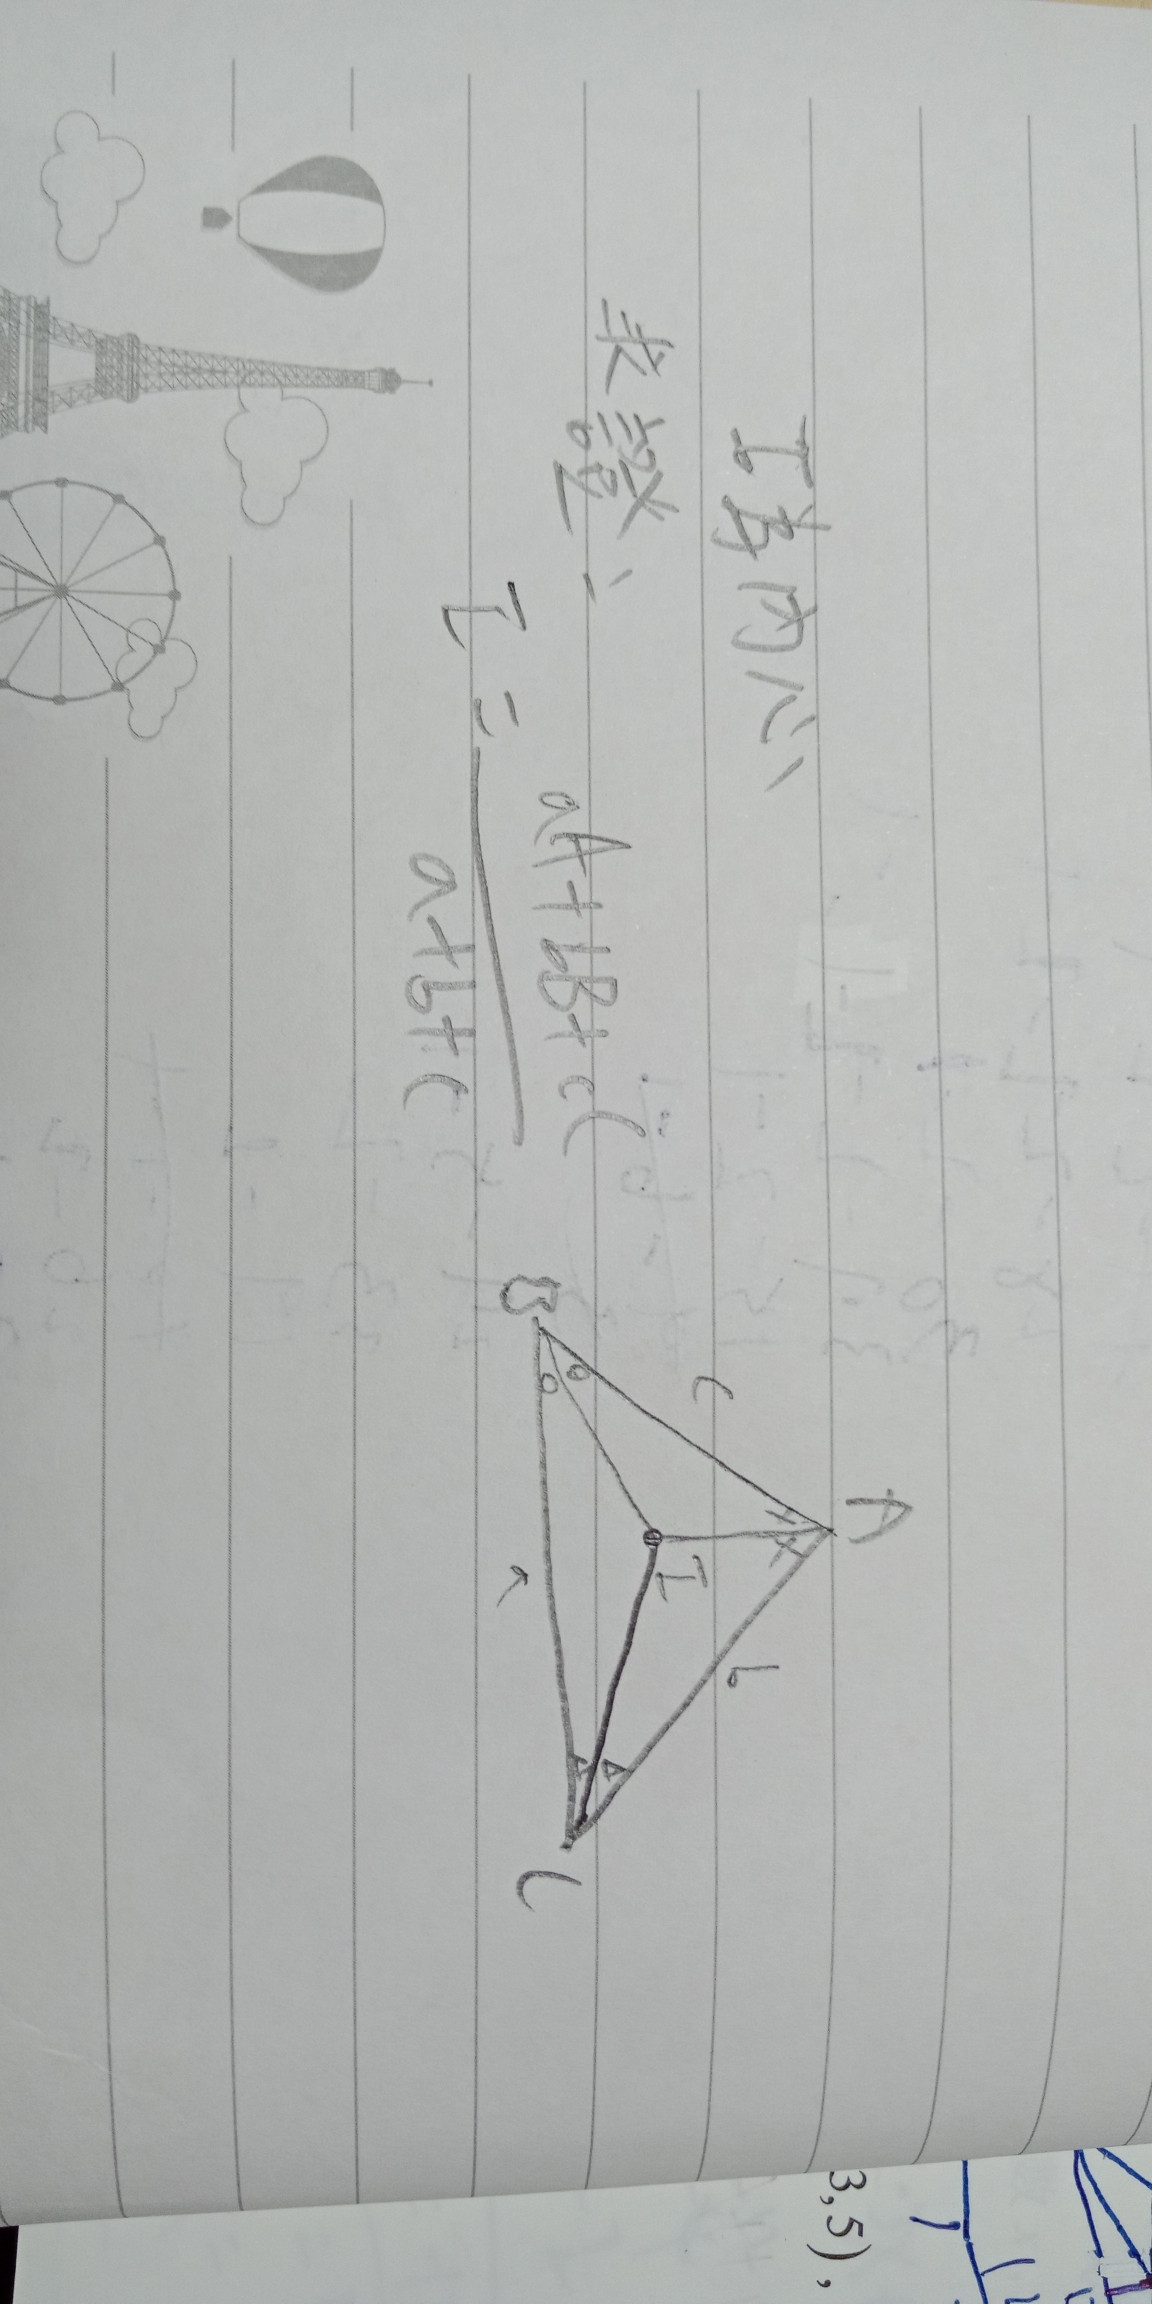 I為內心、
求證、
I = aA+bB+cC
a+b+c
A
c
b
I
B
a
C
3,5),